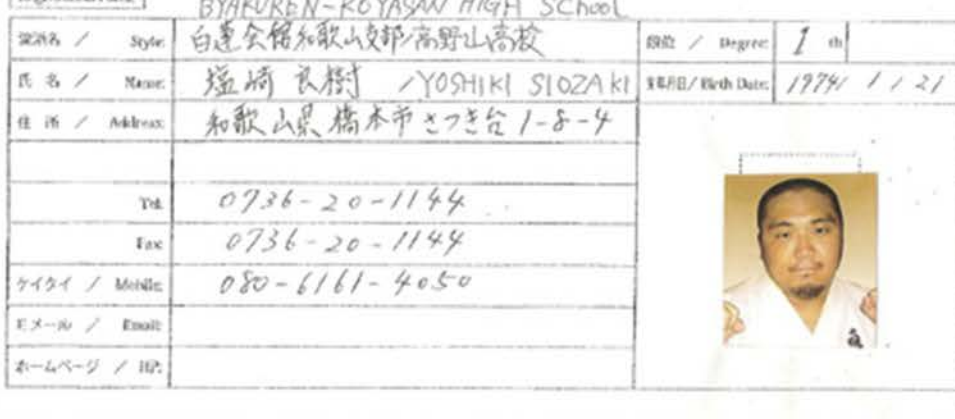 BYAKUREN-KOYASAN HIGH SCHOOL
流派名 / Style: 白蓮会館和歌山支部/高野山高校 段位 / Degree: 1 th
氏 名 / Name: 塩崎 良樹 /YOSHIKI SIOZAKI 生年月日/Birth Date: 1974/ 1 / 21
住 所 / Address: 和歌山県橋本市さつき台 1-8-4
Tel: 0736-20-1144
Fax: 0736-20-1144
ケイタイ / Mobile: 080-6161-4050
Eメール / Email:
ホームページ / HP: